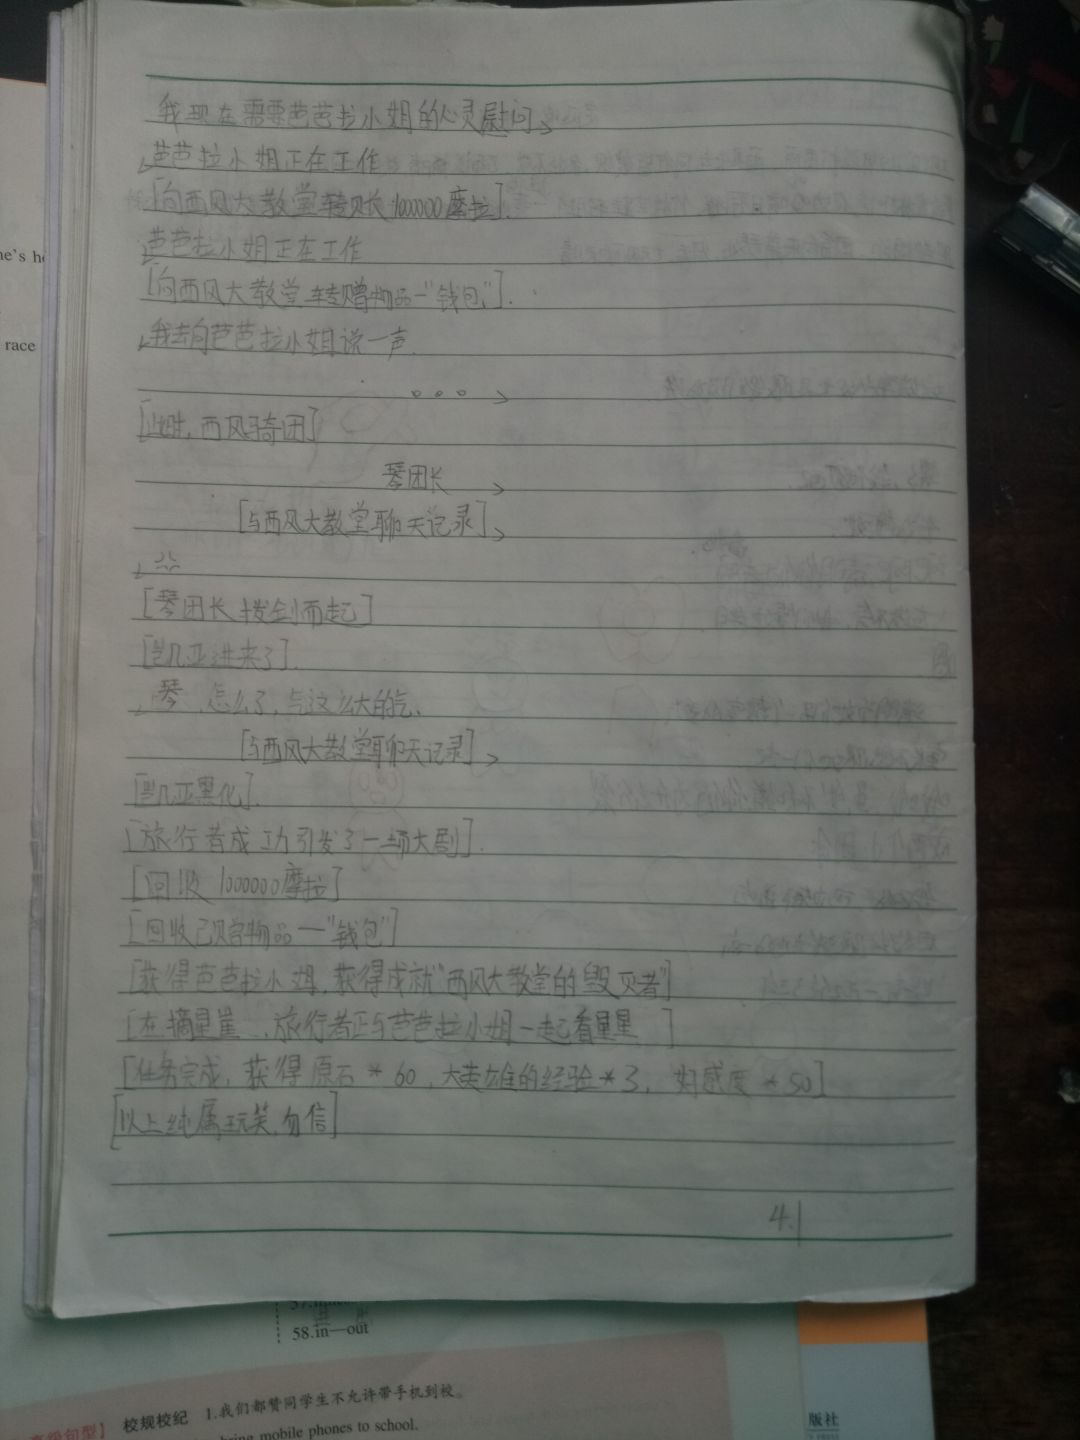 我现在需要芭芭拉小姐的心灵慰问
芭芭拉小姐正在工作
[向西风大教堂转账1000000摩拉].
芭芭拉小姐正在工作
[向西风大教堂转赠物品一"钱包"].
我去向芭芭拉小姐说一声.
。。。
[此时,西风骑团]
琴团长
[与西风大教堂聊天记录]
[琴团长拨剑而起]
[凯亚进来了].
琴,怎么了,气这么大的气、
[与西风大教堂聊天记录]
[凯亚黑化].
[旅行者成功引发了一场大剧].
[回收1000000摩拉]
[回收已赠物品一"钱包"]
[获得芭芭拉小姐,获得成就"西风大教堂的毁灭者"]
[在摘星崖...旅行者正与芭芭拉小姐一起看星星]
[任务完成,获得原石*60,大英雄的经验*3,好感度*50]
[以上纯属玩笑,勿信]
4.1
ne's h
race
58.in—out
校规校纪 1.我们都赞同学生不允许带手机到校。
bring mobile phones to school.
版社